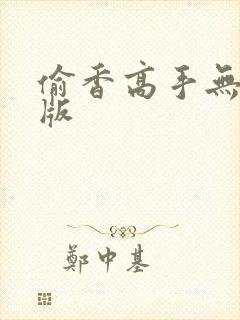 偷香高手無
版
鄭中基